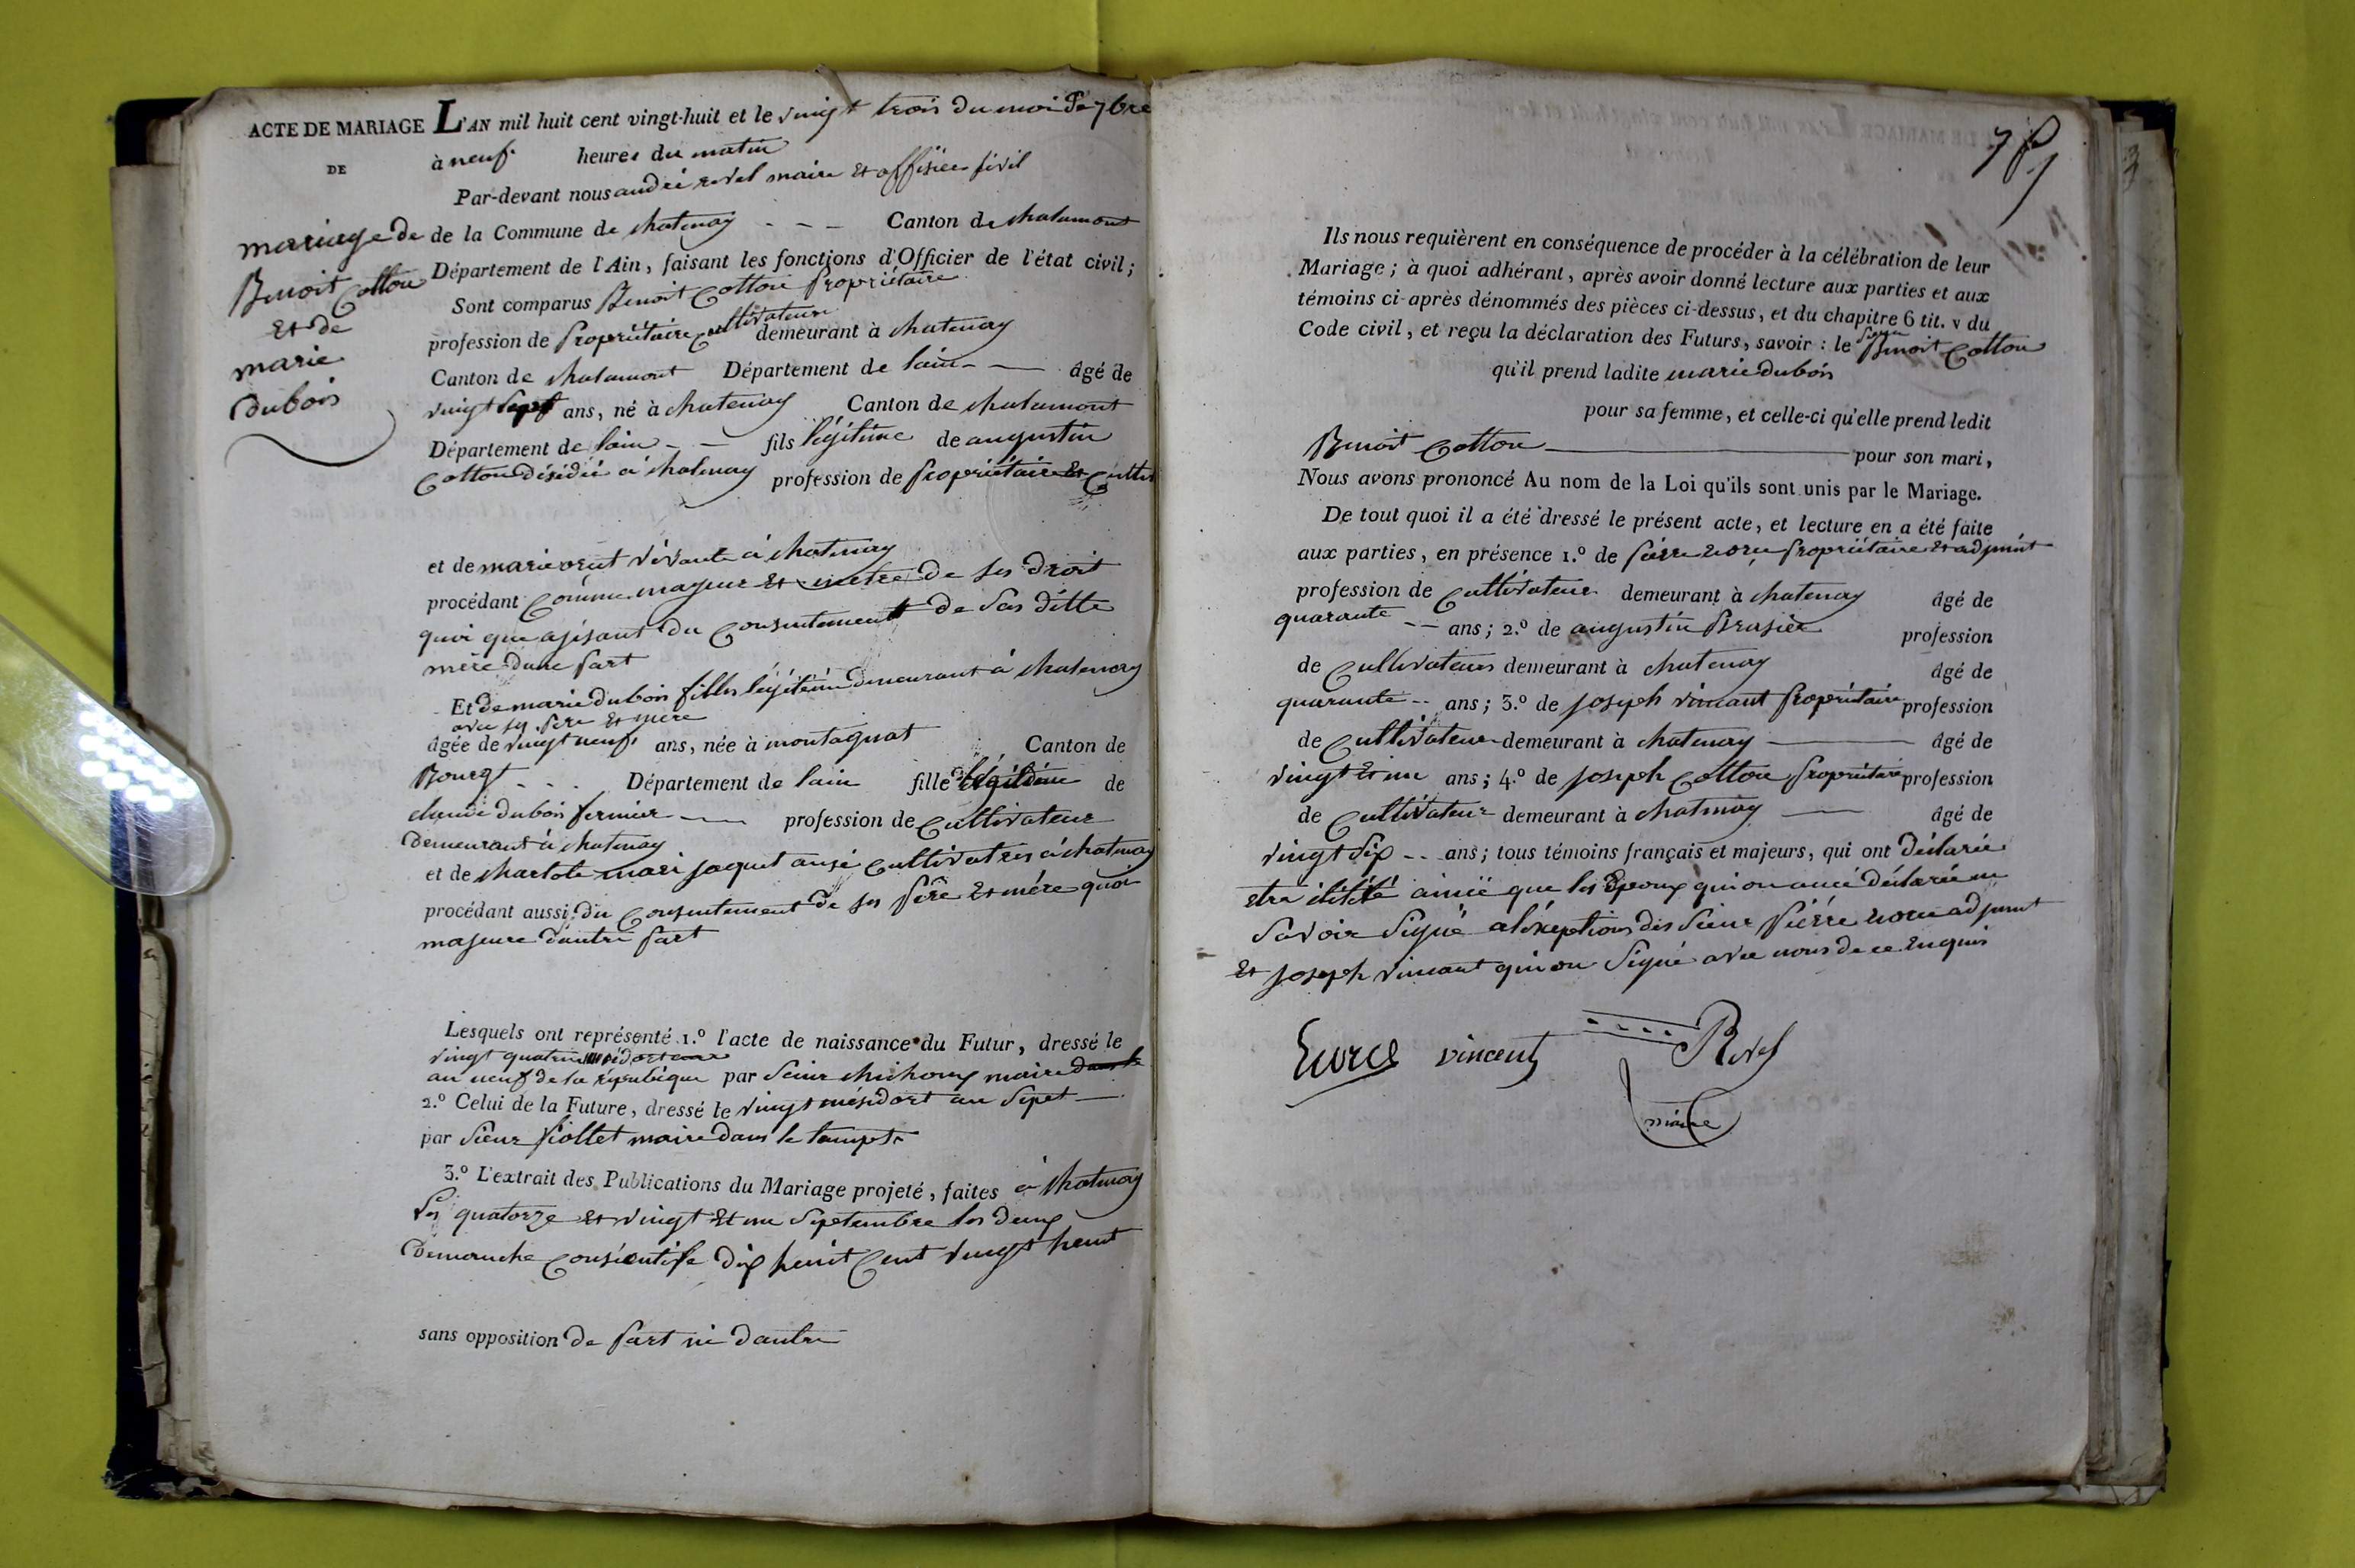 ACTE DE MARIAGE L'AN mil huit cent vingt-huit et le vingt trois du moi de 7bre
DE
à neuf heures du matin
Par-devant nous andré revel maire et offisier sivil
mariage de
Benoit Cotton
et de
marie
dubois
de la Commune de chatenay - - - Canton de chalamont
Département de l'Ain, faisant les fonctions d'Officier de l'état civil;
Sont comparus Benoit Cotton Propriétaire
profession de Propriétaire Cultivateur demeurant à chatenay
Canton de chalamont Département de lain - — âgé de
vingt sept ans, né à chatenay Canton de chalamont
Département de lain - - fils légitime de augustin
Cotton désidé à chatenay profession de Propriétaire et Cultiv
et de marie vivante à chatenay
procédant Comme majeur et metre de ses droit
quoi que agisant du Consentement de sas ditte
mère dune part
Et de marie dubois fille légitime demeurant à chatenay
avec ses pere et mere
âgée de vingt neuf ans, née à montagnat Canton de
Bourgt - - - Département de lain fille légitime de
claude dubois fermier — profession de Cultivateur
demeurant à chatenay
et de charlote mari jaquet ausi Cultivatres à chatenay
procédant aussi du Consentement de ses père et mére quoi
majeure dautre part
Lesquels ont représenté 1.º l'acte de naissance du Futur, dressé le
vingt quatre
an neuf de la république par sieur maire
2.º Celui de la Future, dressé le vingt mésidort an sepet —
par sieur maire dans le tampts
3.º L'extrait des Publications du Mariage projeté, faites à chatenay
les quatorze et vingt et un septembre les deux
demanche Consicutife dix huit Cent vingt huit
sans opposition de part ni dautre
Ils nous requièrent en conséquence de procéder à la célébration de leur
Mariage; à quoi adhérant, après avoir donné lecture aux parties et aux
témoins ci-après dénommés des pièces ci-dessus, et du chapitre 6 tit. v du
Code civil, et reçu la déclaration des Futurs, savoir: le Benoit Cotton
qu'il prend ladite marie dubois
pour sa femme, et celle-ci qu'elle prend ledit
Benoit Cotton — pour son mari,
Nous avons prononcé Au nom de la Loi qu'ils sont unis par le Mariage.
De tout quoi il a été dressé le présent acte, et lecture en a été faite
aux parties, en présence 1.º de pierre Propriétaire et adjoint
profession de Cultivateur demeurant à chatenay âgé de
quarante - - ans; 2.º de augustin Brasier profession
de Cultivateur demeurant à chatenay âgé de
quarante - - ans; 3.º de joseph vincant Propriétaire profession
de Cultivateur demeurant à chatenay — âgé de
vingt et un ans; 4.º de joseph Cotton Propriétaire profession
de Cultivateur demeurant à chatenay — âgé de
vingt six - - ans; tous témoins français et majeurs, qui ont déclarée
etre ainsi que les Epoux qui on ausi déclarée ne
savoir signé à léxeption des sieur piérre adjoint
et joseph vincant qui on signé avec nous de ce Enquis
vincent Revel
maire